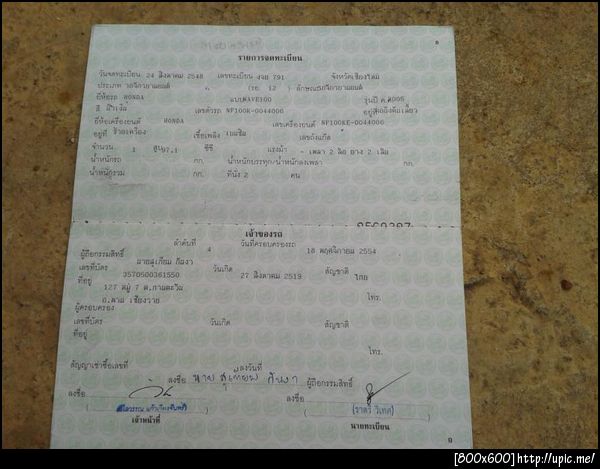 รายการจดทะเบียน
วันจดทะเบียน 24 สิงหาคม 2548 เลขทะเบียน งจม 791 จังหวัดเชียงใหม่
ประเภท รถจักรยานยนต์ (รย. 12) ลักษณะรถจักรยานยนต์
ยี่ห้อรถ HONDA แบบWAVE100 รุ่นปี ค.ศ2005
สี เลขตัวรถ NF100K-0044006 อยู่ที่
ยี่ห้อเครื่องยนต์ HONDA เลขเครื่องยนต์ NF100KE-0044006
อยู่ที่ เชื้อเพลิง เบนซิน เลขถังแก๊ส
จำนวน 1 สูบ97.1 ซีซี แรงม้า - เพลา 2 ล้อ ยาง 2 เส้น
น้ำหนักรถ กก. น้ำหนักบรรทุก/น้ำหนักลงเพลา กก.
น้ำหนักรวม กก. ที่นั่ง 2 คน
เจ้าของรถ
ลำดับที่ 4 วันที่ครอบครองรถ 18 พฤศจิกายน 2554
ผู้ถือกรรมสิทธิ์ นายสุเทียม กันงา
เลขที่บัตร 3570500361550 วันเกิด 27 สิงหาคม 2519 สัญชาติ ไทย
ที่อยู่ 127 หมู่ 7
โทร.
ผู้ครอบครอง
เลขที่บัตร วันเกิด สัญชาติ
ที่อยู่
โทร.
สัญญาเช่าซื้อเลขที่ ลงวันที่
ลงชื่อ นาย สุเทียม กันงา ผู้ถือกรรมสิทธิ์
ลงชื่อ ลงชื่อ
(ราตรี วิเทศ)
เจ้าหน้าที่ นายทะเบียน
[800x600]http://upic.me/